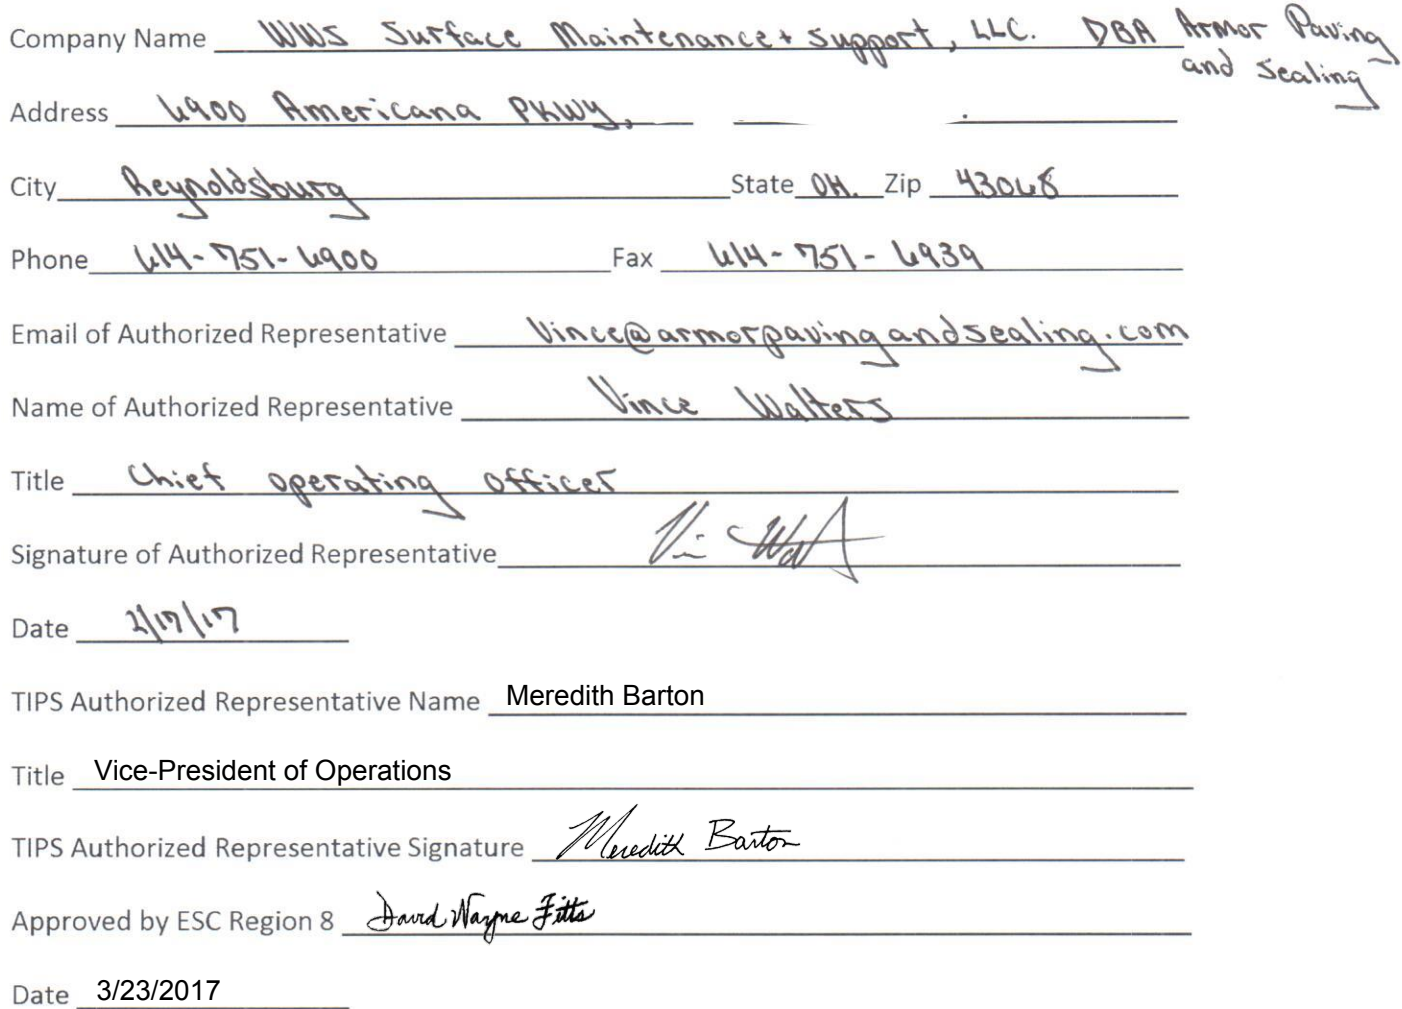 Company Name WWS Surface Maintenance + Support, LLC. DBA Armor Paving
and Sealing
Address 6900 Americana PKWY,
City Reynoldsburg State OH. Zip 43068
Phone 614-751-6900 Fax 614-751-6939
Email of Authorized Representative Vince@armorpavingandsealing.com
Name of Authorized Representative Vince Walters
Title Chief operating officer
Signature of Authorized Representative
Date 2/17/17
TIPS Authorized Representative Name Meredith Barton
Title Vice-President of Operations
TIPS Authorized Representative Signature Meredith Barton
Approved by ESC Region 8 David Wayne Fitts
Date 3/23/2017